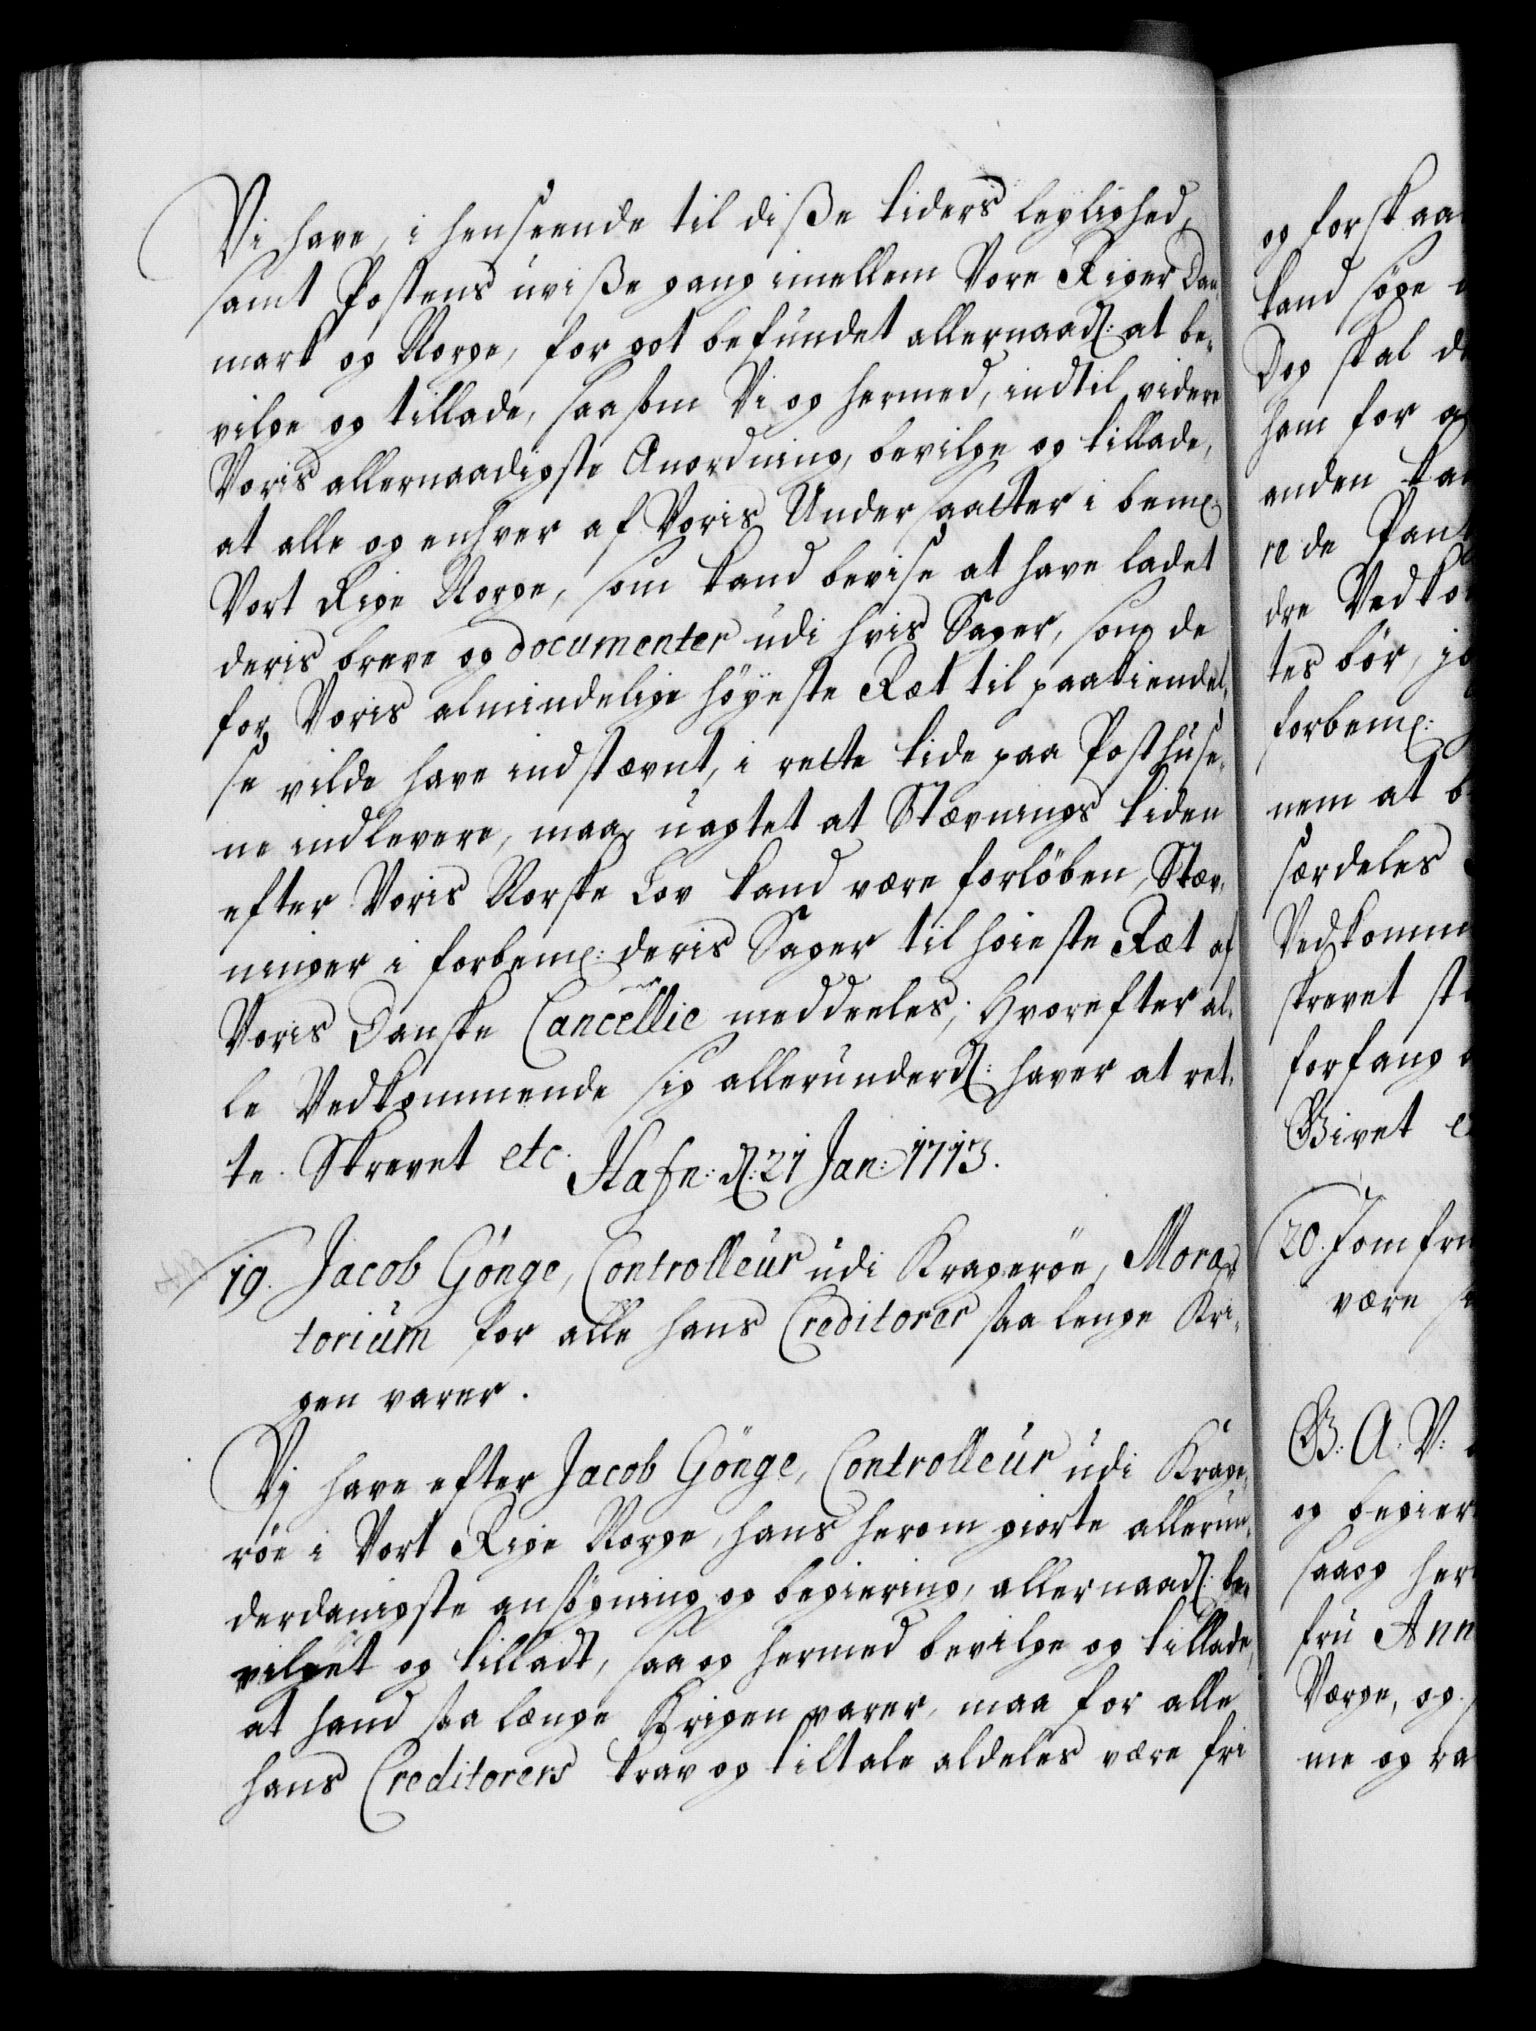 Vi have, i henseende til diße tiders leylighed,
samt Postens uviße gang imellem Vore Riger Dan¬
mark og Norge, for got befundet allernaadl: at be¬
vilge og tillade, saasom Vi og hermed, indtil videre
Voris allernaadigste Anordning, bevilge og tillade,
at alle og enhver af Voris Undersaatter i bemt:
Vort Rige Norge, som kand bevise at have ladet
deris breve og documenter udi hvis Sager, som de
for Voris almindelige höyeste Ræt til paakiendel¬
se vilde have indstævnt, i rette tide paa Posthuse¬
ne indlevere, maa, uagtet at Stævnings tiden
efter Voris Norske Lov kand være forlöben, Stæv¬
ninger i forbemt: deris Sager til höieste Ræt af
Voris Danske Cancellie meddeeles; Hvorefter al¬
le Vedkommende sig allerunderdl: haver at ret¬
te. Skrevet etc. Hafn: d: 21 Jan: 1713.
19. Jacob Gönge, Controlleur udi Kragerøe, Mora¬
torium for alle hans Creditorer saa lenge Kri¬
gen varer.
Vj have efter Jacob Gönge, Controlleur udi Krage¬
røe i Vort Rige Norge, hans herom giorte allerun¬
derdanigste ansögning og begiering, allernaadl: be¬
vilget og tilladt, saa og hermed bevilge og tillade,
at hand saa længe Krigen varer, maa for alle
hans Creditorers krav og tiltale aldeles være fri
og forskaa
kand söge
Dog skal d
ham for
anden
rede Pant
dre Vedko
tes bör,
forbemt:
nem at b
særdeles
Vedkomm
skrevet st
forfang
Givet
20. Jomfru
være
G: A: V:
og begier
saa og her
fru Ann
Værge, og
me og ra